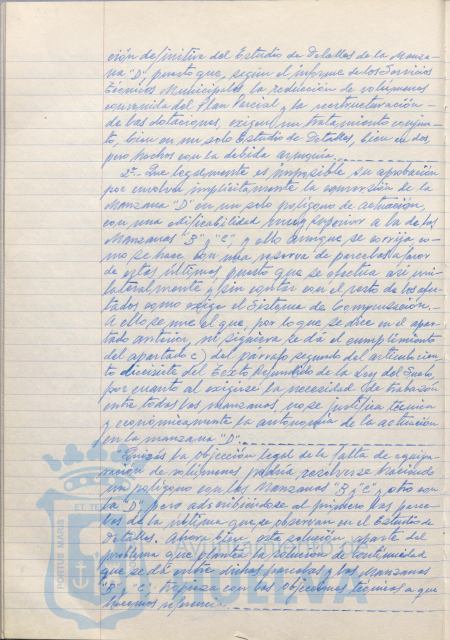 ción definitiva del Estudio de Detalles de la Manza-
na "D", puesto que, según el informe de los Servicios
Técnicos Municipales, la redicción de volúmenes
convenida del Plan Parcial y la reestructuración
de las dotaciones, exigen un tratamiento conjun-
to, bien en un solo Estudio de Detalles, bien en dos,
pero hechos con la debida armonía.
2º. Que legalmente es imposible su aprobación
por envolver implícitamente la conversión de la
Manzana "D" en un solo polígono de actuación,
con una edificabilidad muy superior a la de las
Manzanas "B" y "C", y ello aunque se corrija, co-
mo se hace, con una reserva de parcelas a favor
de estas últimas puesto que se efectua así uni-
lateralmente y sin contar con el resto de los afec-
tados como exige el Sistema de Compensación.-
A ello se une el que, por lo que se dice en el apar-
tado anterior, ni siquiera se dá el cumplimiento
del apartado c) del párrafo segundo del artículo cien-
to diecisiete del Texto Refundido de la Ley del Suelo,
por cuanto al exigirse la necesidad de trabazón
entre todas las manzanas, no se justifica técnica
y económicamente la autonomía de la actuación
en la manzana "D".
Quizás la objeción legal de la falta de equipa-
ración de volúmenes podría resolverse haciendo
un polígono con las Manzanas "B" y "C" y otro con
la "D", pero adscribiéndose al primero las parce-
las de la última que se observan en el Estudio de
Detalles. Ahora bien, esta solución, aparte del
problema que plantea la solución de continuidad
que se dá entre dichas parcelas y las Manzanas
"B" y "C", tropieza con las objeciones técnicas a que
hacemos referencia.
PORTUS MARIS
ET TE